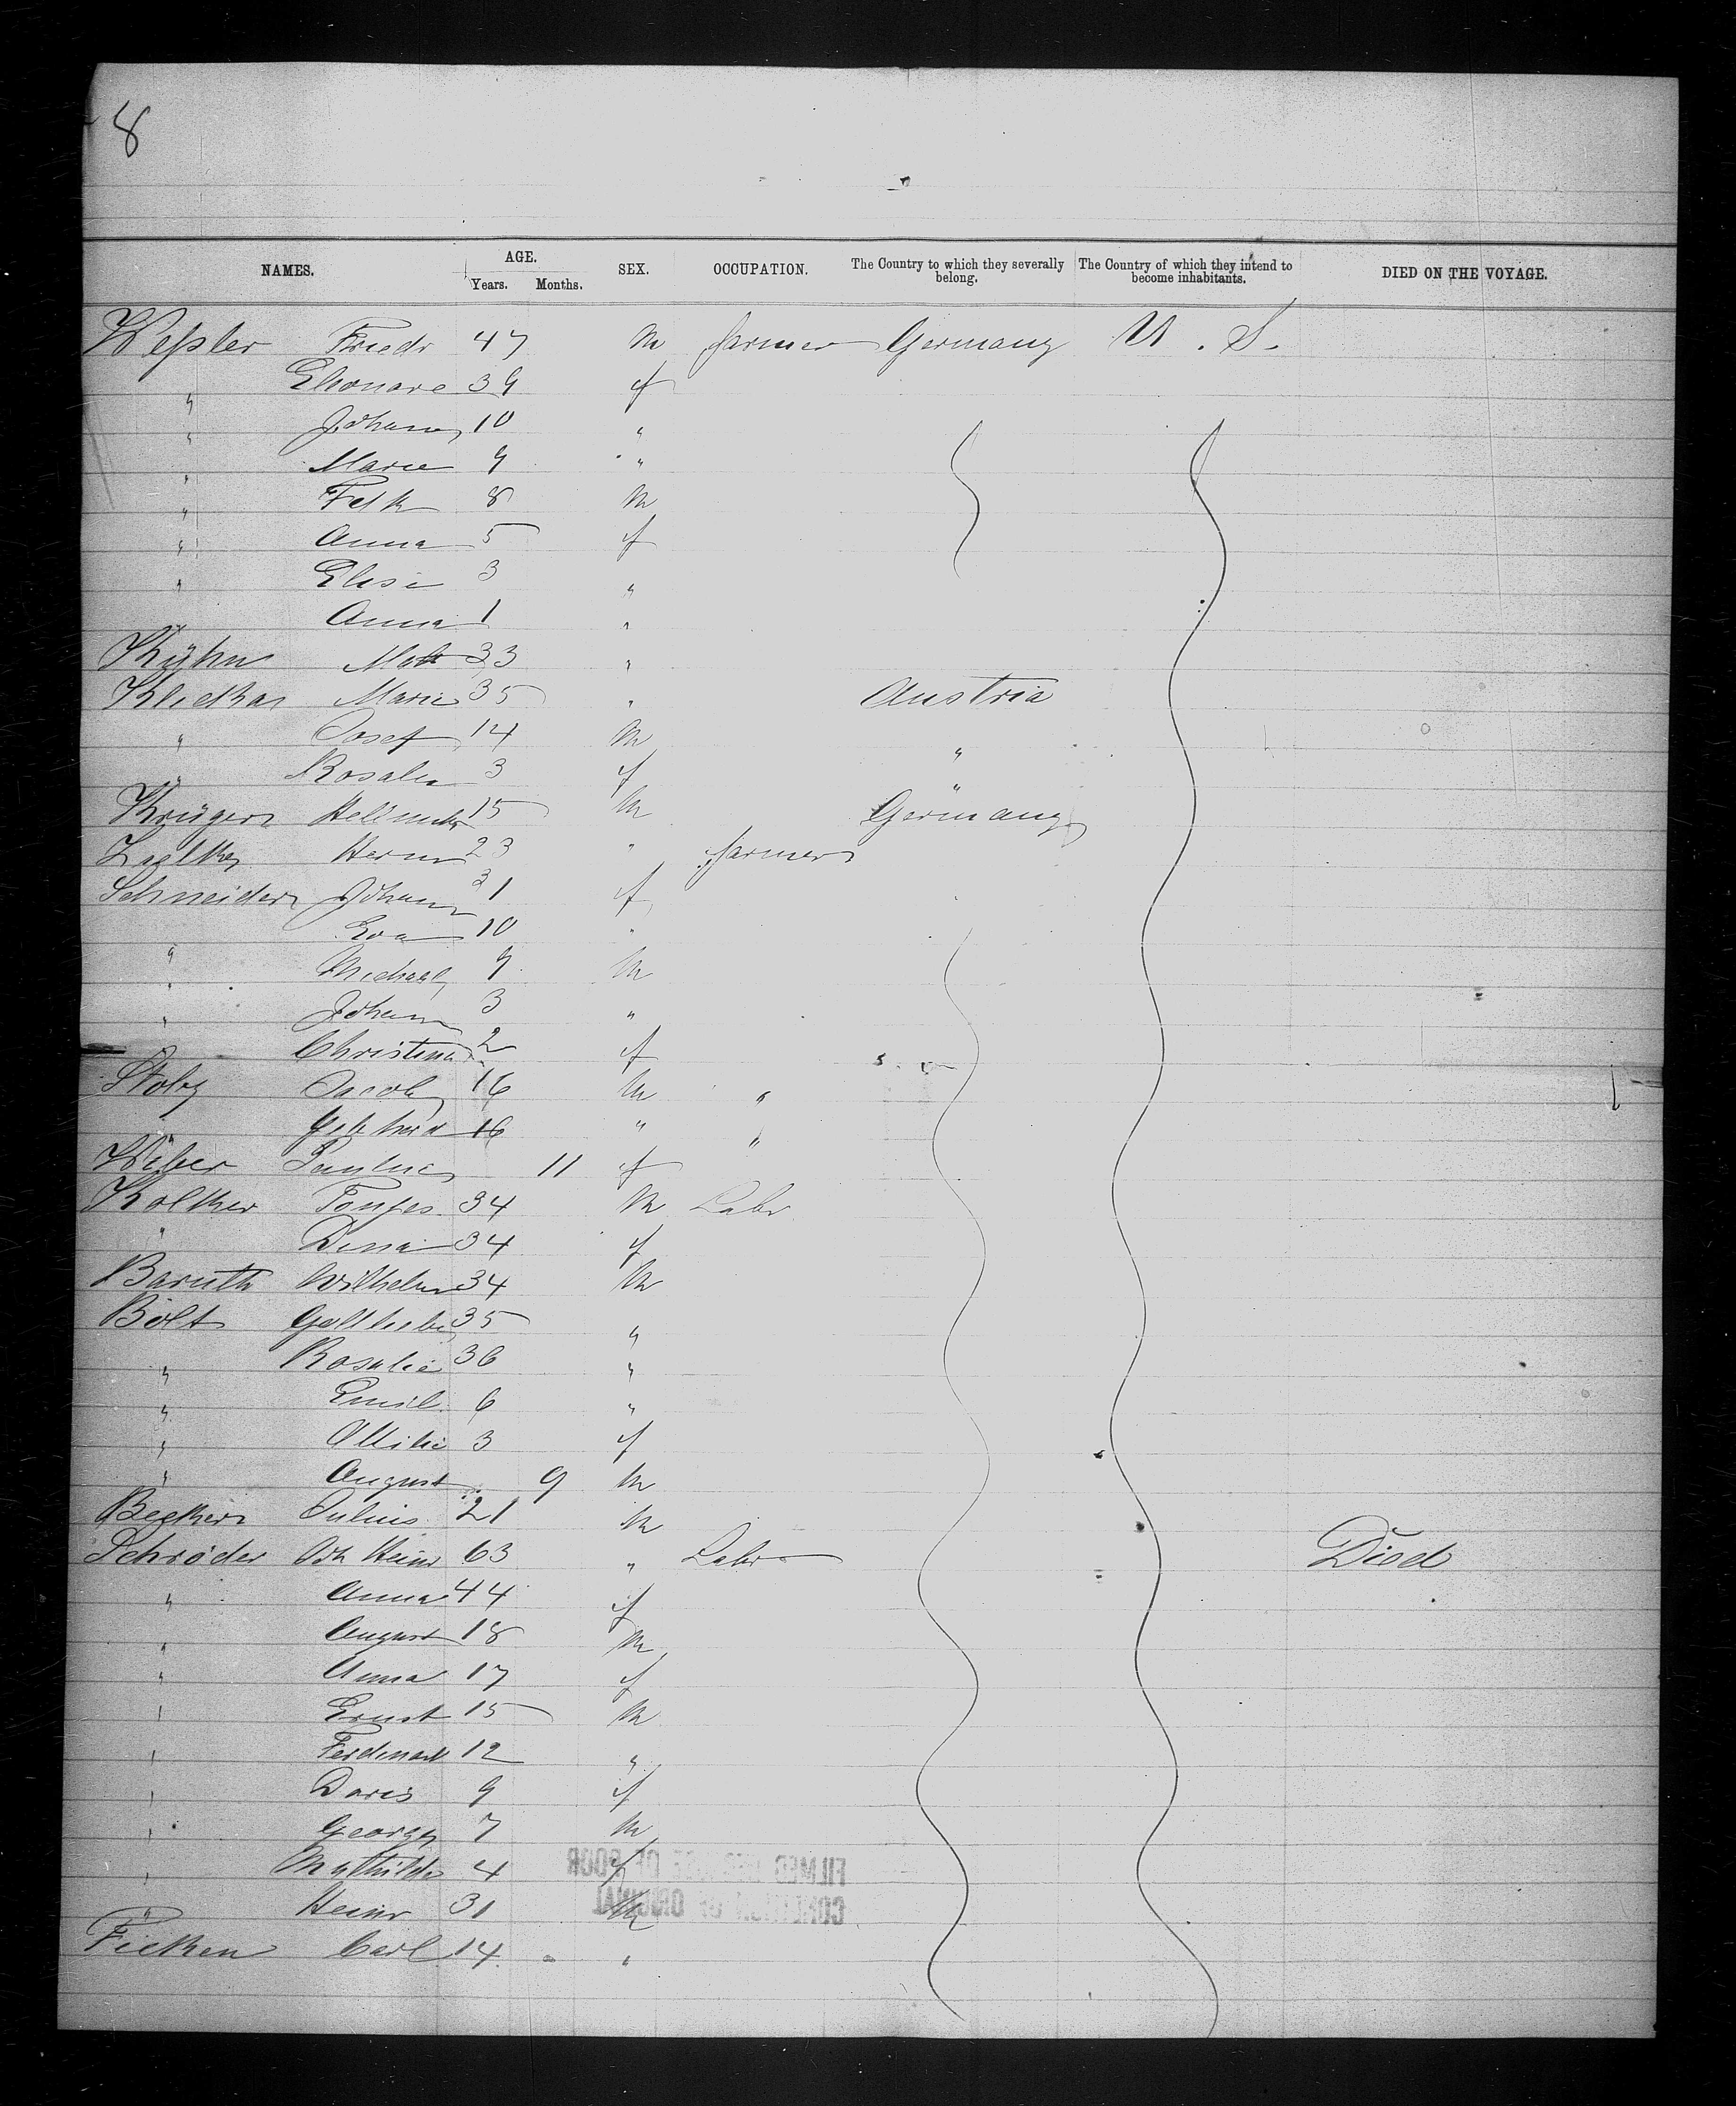 8
NAMES. AGE. Years. Months. SEX. OCCUPATION. The Country to which they severally belong. The Country of which they intend to become inhabitants. DIED ON THE VOYAGE.
Weßler Friedr 47 m farmer Germany U. S.
" Elionore 39 f
" Johann 10 "
" Marie 9 "
" 8 m
" Anna 5 f
" Elise 3 "
" Anna 1 "
Kühn 33 "
Marie 35 " Austria
" Josef 14 m "
" Rosalia 3 f "
Krüger Hellmuth 15 m Germany
Herm 23 " farmer
Schneider Johann 31 f
" Eva 10 "
" Michael 9 m
" Johann 3 "
" Christina 2 f
Jacob 16 m "
" 16 " "
Weber Pauline 11 f
Kolker Tonjes 34 m Labr
" Dina 34 f
Baruth Wilhelm 34 m
Bolt Gottlieb 35 "
" Rosalie 36 "
" Emil 6 "
" Ottilie 3 f
" August 9 m
Becker Julius 21 m
Schröder Joh Heinr 63 " Labr Died
" Anna 44 f
" August 18 m
" Anna 17 f
" Ernst 15 m
" Ferdinand 12 "
" Doris 9 f
" Georg 7 m
" Mathilde 4 f
" Heinr 31 m
Ficken Carl 14 "